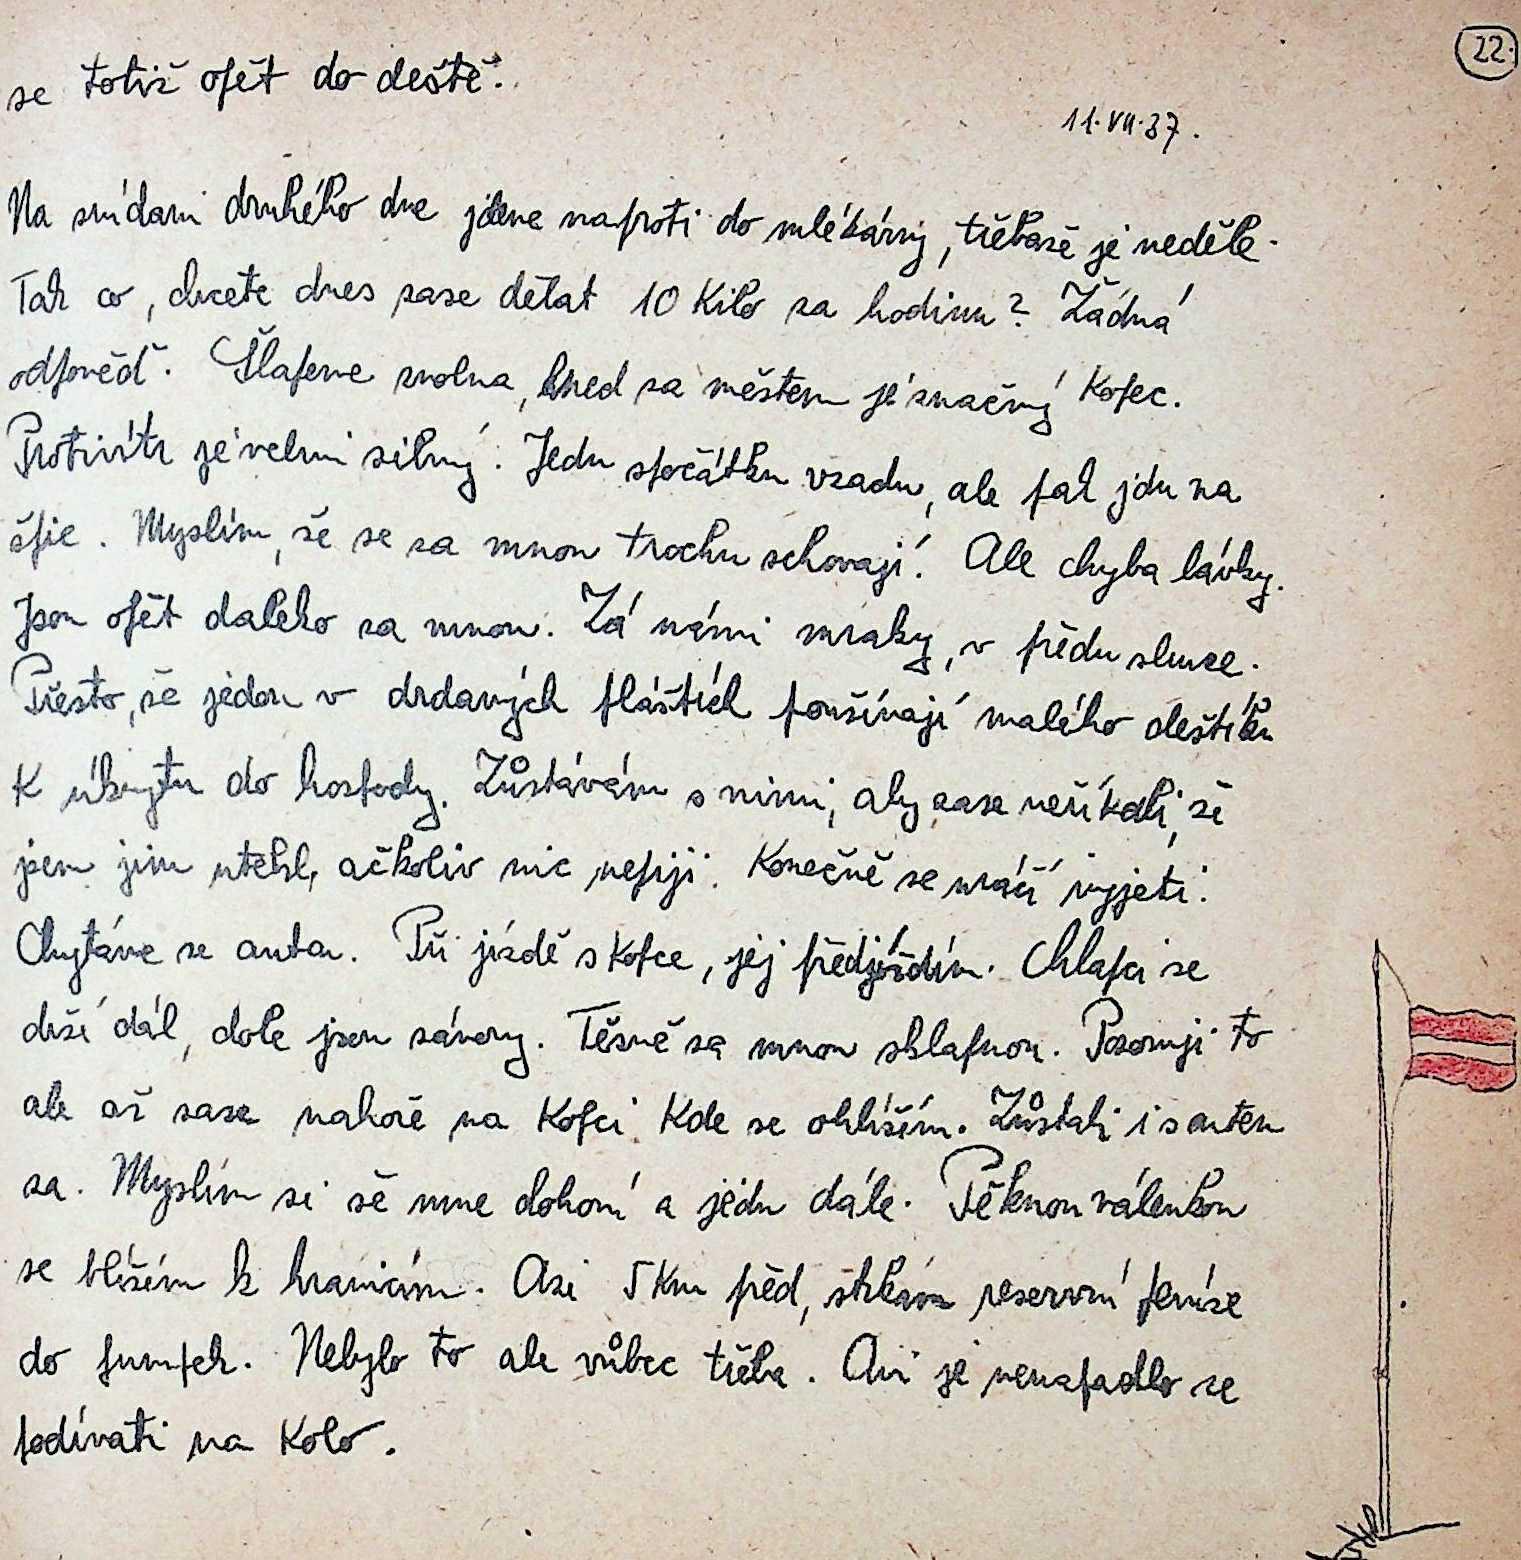 22.
se totiž opět do deště.
11.VII.37.
Na snídani druhého dne jdeme naproti do mlékárny, třebaže je neděle.
Tak co, chcete dnes zase dělat 10 kilo za hodinu? Žádná
odpověď. Šlapeme zvolna, hned za městem je značný kopec.
Protivítr je velmi silný. Jedu zpočátku vzadu, ale pak jdu na
špic. Myslím, že se za mnou trochu schovají. Ale chyba lávky.
Jsou opět daleko za mnou. Zá námi mraky, v předu slunce.
Přesto, že jedou v drdavých pláštích používají malého deštíku
k úkrytu do hospody. Zůstávám s nimi, aby zase neříkali, že
jsem jim utekl, ačkoliv nic nepiji. Konečně se ráčí vyjeti.
Chytáme se auta. Při jízdě s kopce, jej předjíždím. Chlapci se
drží dál, dole jsou závory. Těsně za mnou sklapnou. Pozoruji to
ale až zase nahoře na kopci kde se ohlížím. Zůstali i s autem
za. Myslím si že mne dohoní a jedu dále. Pěknou válenkou
se blížím k hranicím. Asi 5 km před, strkám reservní peníze
do pumpek. Nebylo to ale vůbec třeba. Ani je nenapadlo se
podívati na kolo.